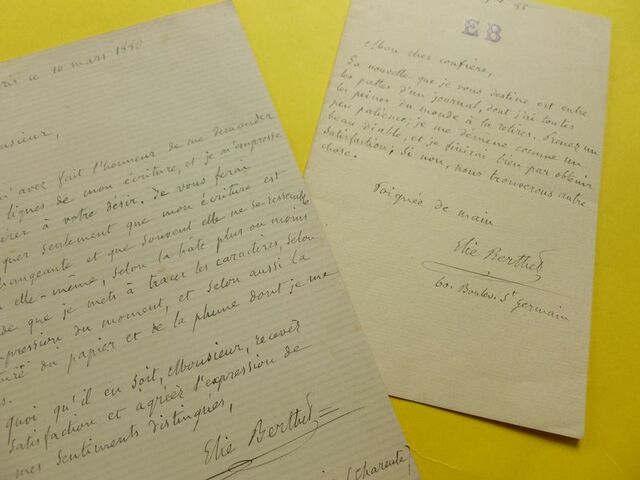 ris ce 10 mars 1880
onsieur,
m'avez fait l'honneur de me demander
lignes de mon écriture, et je m'empresse
érer à votre désir. Je vous ferai
quer seulement que mon écriture est
hangeante et que souvent elle ne se ressemble
à elle-même, selon la hâte plus ou moins
de que je mets à tracer les caractères, selon
mpression du moment, et selon aussi la
ture du papier et de la plume dont je me
s.
quoi qu'il en soit, Monsieur, recevez
satisfaction et agréez l'expression de
mes sentiments distingués,
Elie Berthet
(Charente,
88
EB
Mon cher confrère,
La nouvelle que je vous destine est entre
les pattes d'un journal, dont j'ai toutes
les peines du monde à la retirer. Prenez un
peu patience; je me démène comme un
beau diable, et je finirai bien par obtenir
satisfaction; si non, nous trouverons autre
chose.
Poignée de main
Elie Berthet
60. Boulev. St Germain